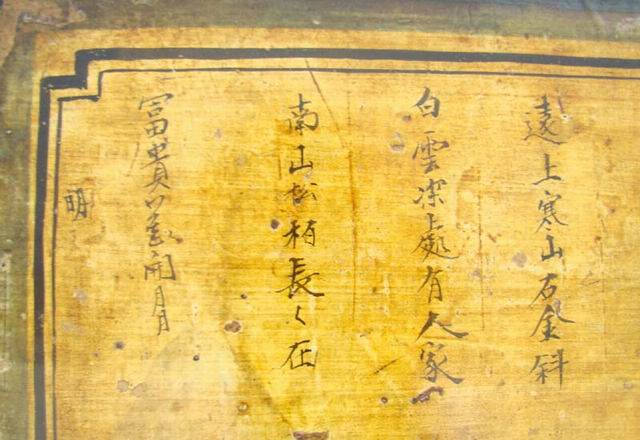 遠上寒山石金斜
白雲深處有人家
南山松柏長々在
富貴開月月
明